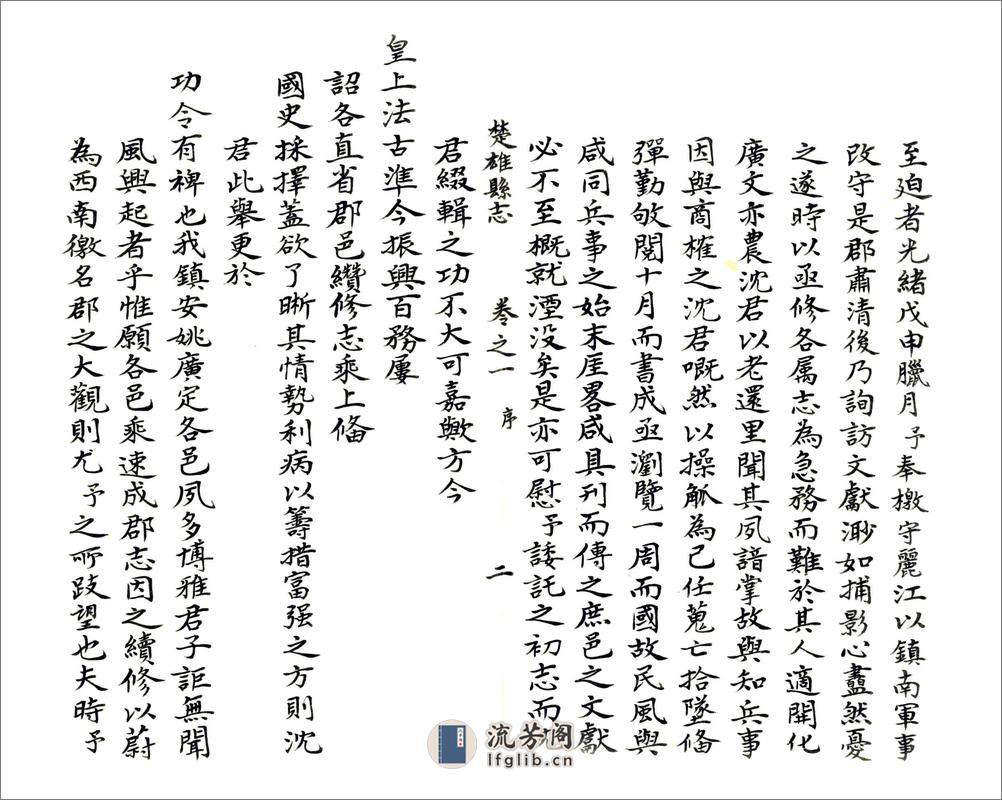 至廹者光緒戊申臘月予奉檄守麗江以鎮南軍事
改守是郡肅清後乃詢訪文獻渺如捕影心盡然憂
之遂時以亟修各属志為急務而難於其人適開化
廣文亦農沈君以老還里聞其夙諳掌故與知兵事
因與商榷之沈君嘅然以操觚為己任蒐亡拾墜俻
彈勤敂閱十月而書成亟瀏覽一周而國故民風與
咸同兵事之始末厓畧咸具刊而傳之庶邑之文獻
必不至概就湮没矣是亦可慰予諉託之初志而
楚雄縣志 卷之一 序 二
君綴輯之功不大可嘉歟方今
皇上法古準今振興百務屢
詔各直省郡邑纘修志乘上俻
國史採擇盖欲了晰其情勢利病以籌措富强之方則沈
君此舉更於
功令有裨也我鎮安姚廣定各邑夙多博雅君子詎無聞
風興起者乎惟願各邑乘速成郡志因之續修以蔚
為西南徼名郡之大觀則尤予之所跂望也夫時予
流芳閣
lfglib.cn